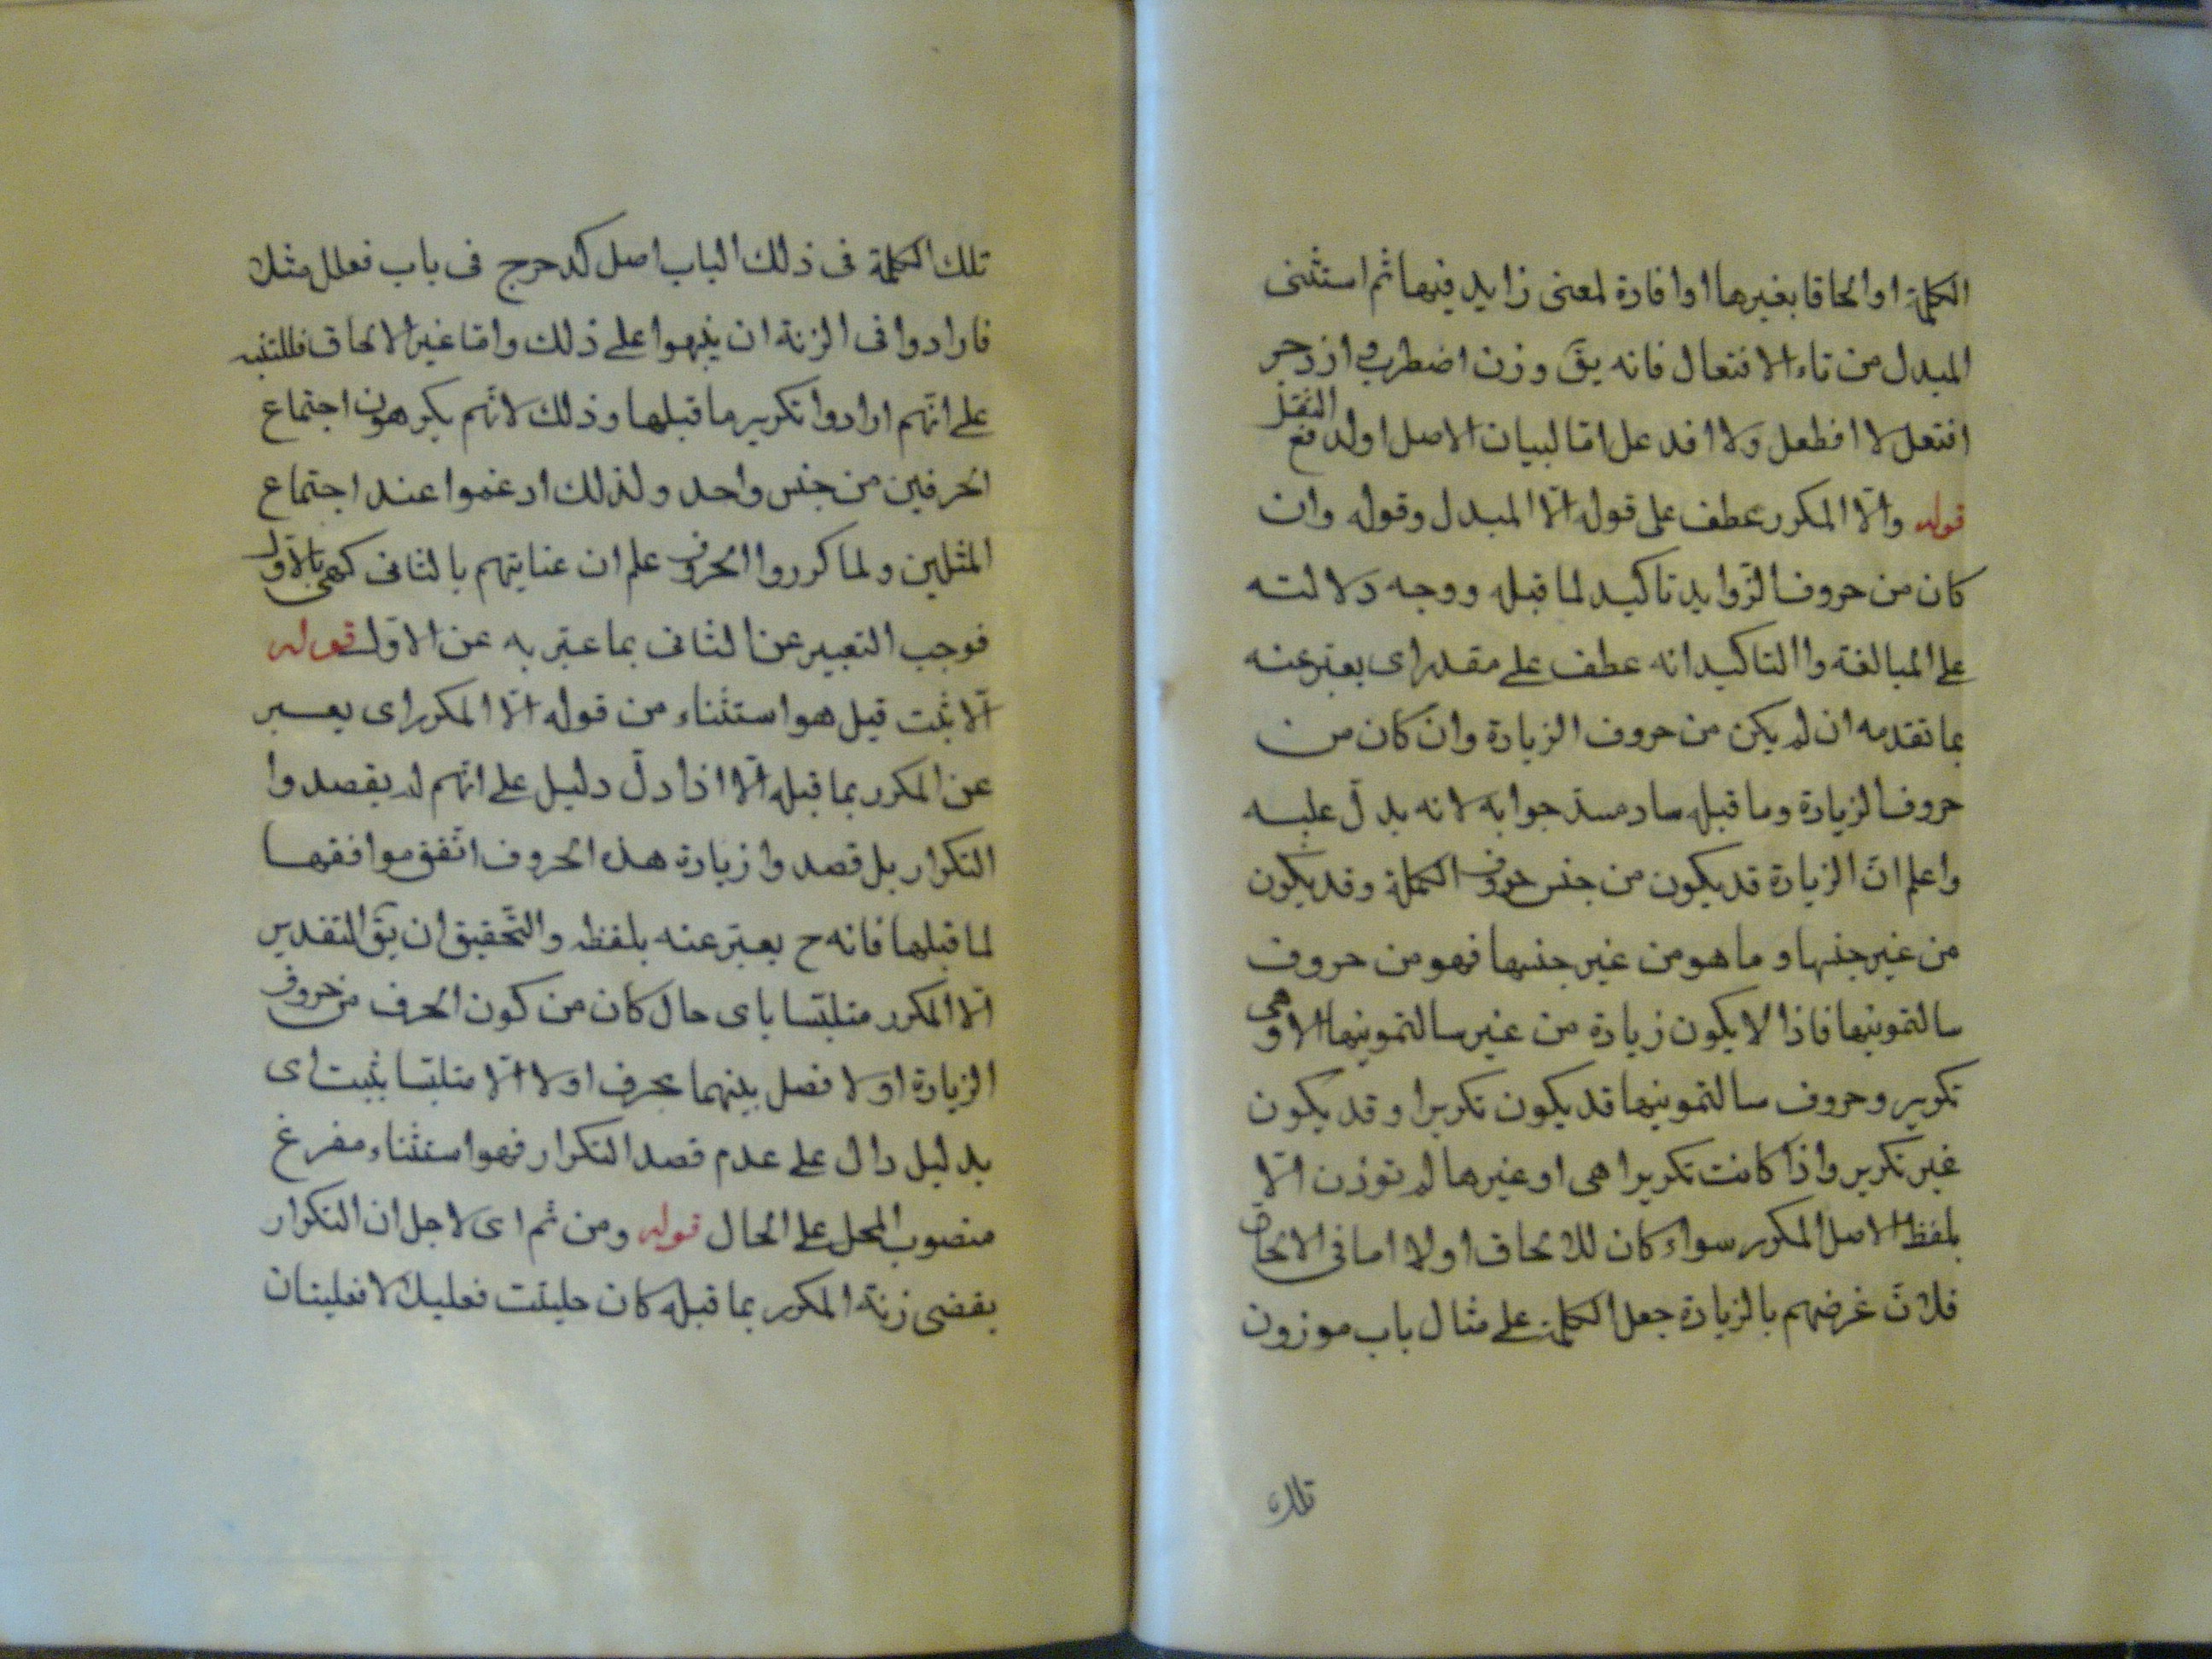 الكلمة او الحاقا بغيرها او افادة لمعنى زايد فيها ثم استثنى
المبدل من تاء الافتعال فانه يق وزن اضطرب و ازدجر
افتعل لا افطعل ولا افدعل اما لبيان الاصل او لدفع الثقل
قوله والّا المكرر عطف على قوله الّا المبدل وقوله وان
كان من حروف الزّوايد تاكيد لما قبله ووجه دلالته
على المبالغة واالتاكيد انه عطف على مقدر اى يعبّر عنه
بما تقدمه ان لم يكن من حروف الزيادة وان كان من
حروف الزيادة وما قبله ساد مسدّ جوابه لانه يدلّ عليه
واعلم انّ الزيادة قد يكون من جنس حروف الكلمة وقد يكون
من غير جنسها وما هو من غير جنسها فهو من حروف
سالتمونيها فاذا لا يكون زيادة من غير سالتمونيها الا وهى
تكرير وحروف سالتمونيها قد يكون تكريرا وقد يكون
غير تكرير واذا كانت تكريرا هى او غيرها لم توزن الّا
بلفظ الاصل المكرر سواء كان للالحاق اولا اما فى الالحاق
فلانّ غرضهم بالزيادة جعل الكلمة على مثال باب موزون
تلك
تلك الكلمة فى ذلك الباب اصل كدحرج فى باب فعلل مثلا
فارادوا فى الزنة ان ينبهوا على ذلك وامّا غير الالحاق فللتنبيه
على انّهم ارادوا تكرير ما قبلها وذلك لانّهم يكرهون اجتماع
الحرفين من جنس واحد ولذلك ادغموا عند اجتماع
المثلين ولما كرروا الحروف علم ان عنايتهم بالثانى كهى بالاوّل
فوجب التعبير عن الثانى بما عبّر به عن الاوّل قوله
الّا بثبت قيل هو استثناء من قوله الّا المكرر اى يعبر
عن المكرر بما قبله الّا اذا دلّ دليل على انّهم لم يقصدوا
التكرار بل قصدوا زيادة هذه الحروف اتّفق موافقها
لما قبلها فانه ح يعبّر عنه بلفظه والتّحقيق ان يق التقدير
الّا المكرر متلبّسا باى حال كان من كون الحرف من حروف
الزيادة اولا فصل بينهما بحرف اولا الّا متلبّسا بثبت اى
بدليل دال على عدم قصد التكرار فهو استثناء مفرغ
منصوب المحل على الحال قوله ومن ثم اى لاجل ان التكرار
يقضى زنة المكرر بما قبله كان حليتت فعليلا لا فعليتان